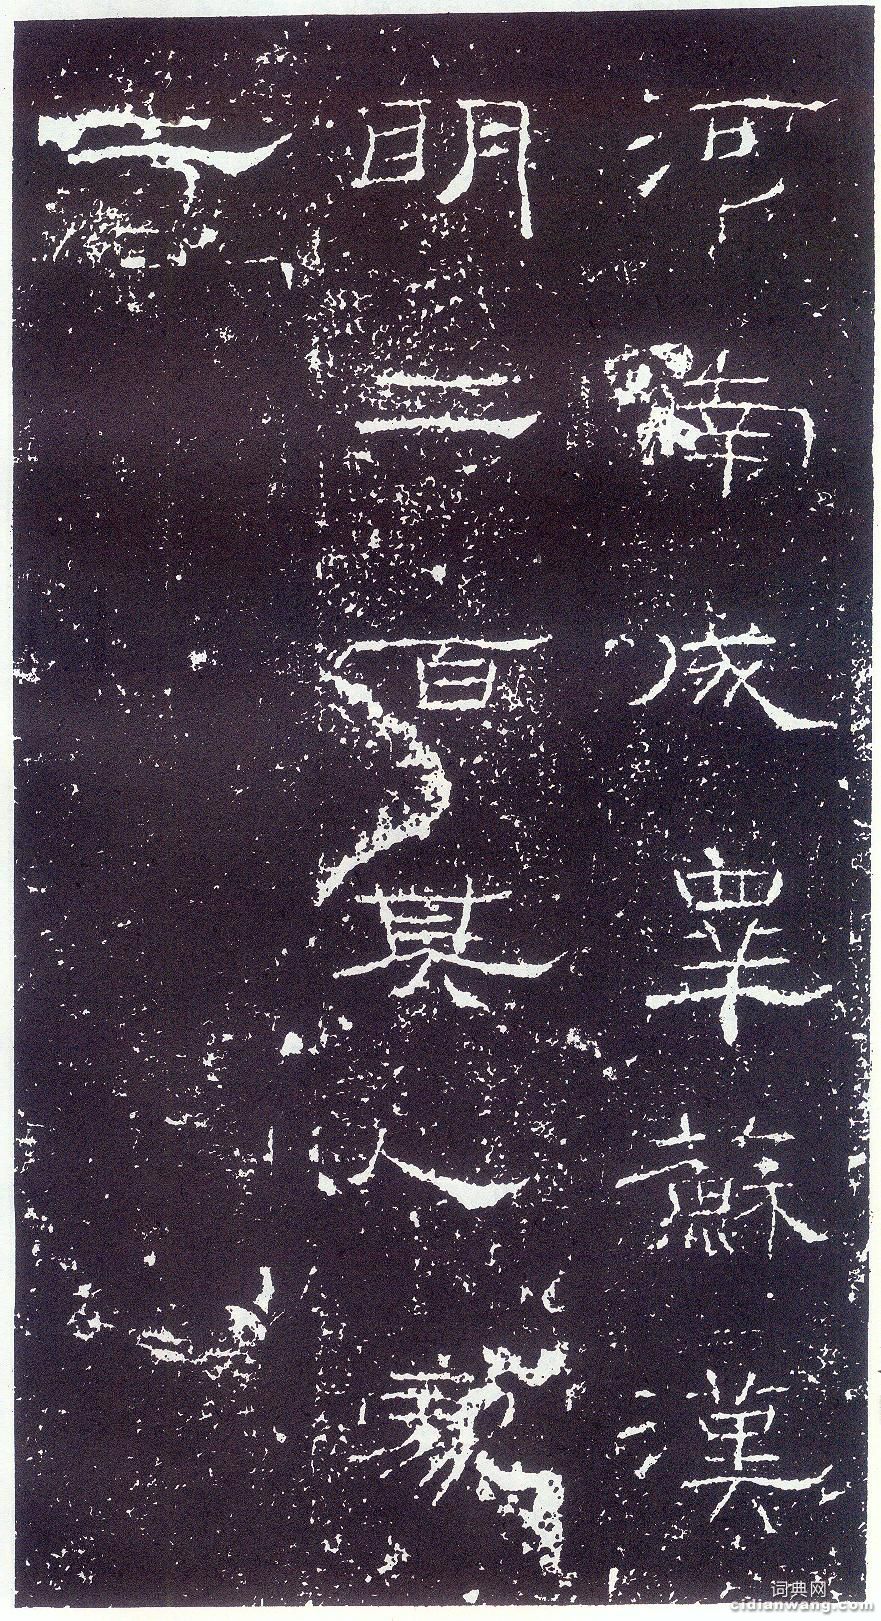 河南成皋蘇漢
明二百其人處
士
词典网
cidianwang.com